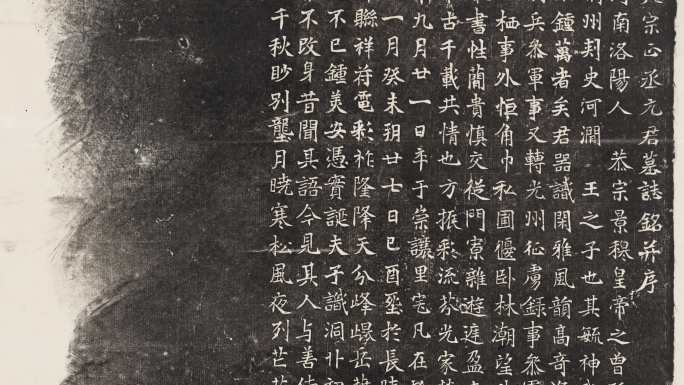 宗正丞元君墓誌銘并序
南洛陽人 恭宗景穆皇帝之曾
州刾史河澗 王之子也其毓神
鍾萬者矣君器識閑雅風韻高奇
兵叅軍事又轉光州征虜録事叅
栖事外恒角巾私圃偃卧林潮望
書性蘭貴慎交從門寮雜遊遳盈
古千載共情也方振彩流芬光家
九月廿一日卒于崇讓里宅凡在
一月癸未朔廿七日己酉窆於長
聯祥苻電彩祚隆降天分峰嶷岳
不已鍾美安憑寶誕夫子識洞
不改身昔聞其語今見其人与善
千秋眇別壟月曉寒松風夜列芒